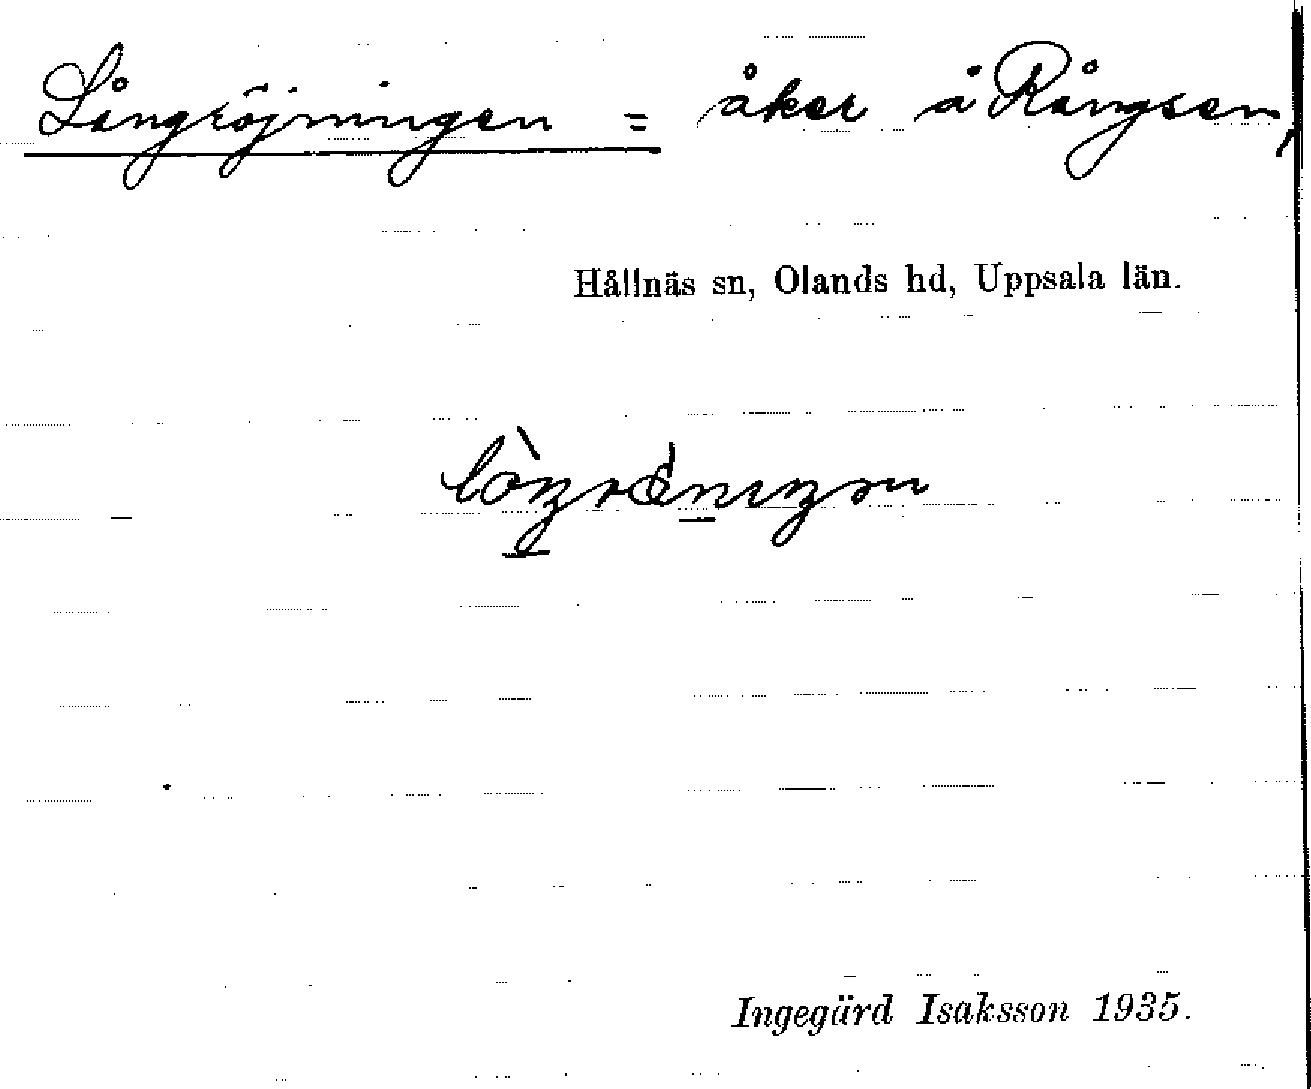 Långröjningen = åker å Rångsen,
Hållnäs sn, Olands hd, Uppsala län.
Ingegärd Isaksson 1935.